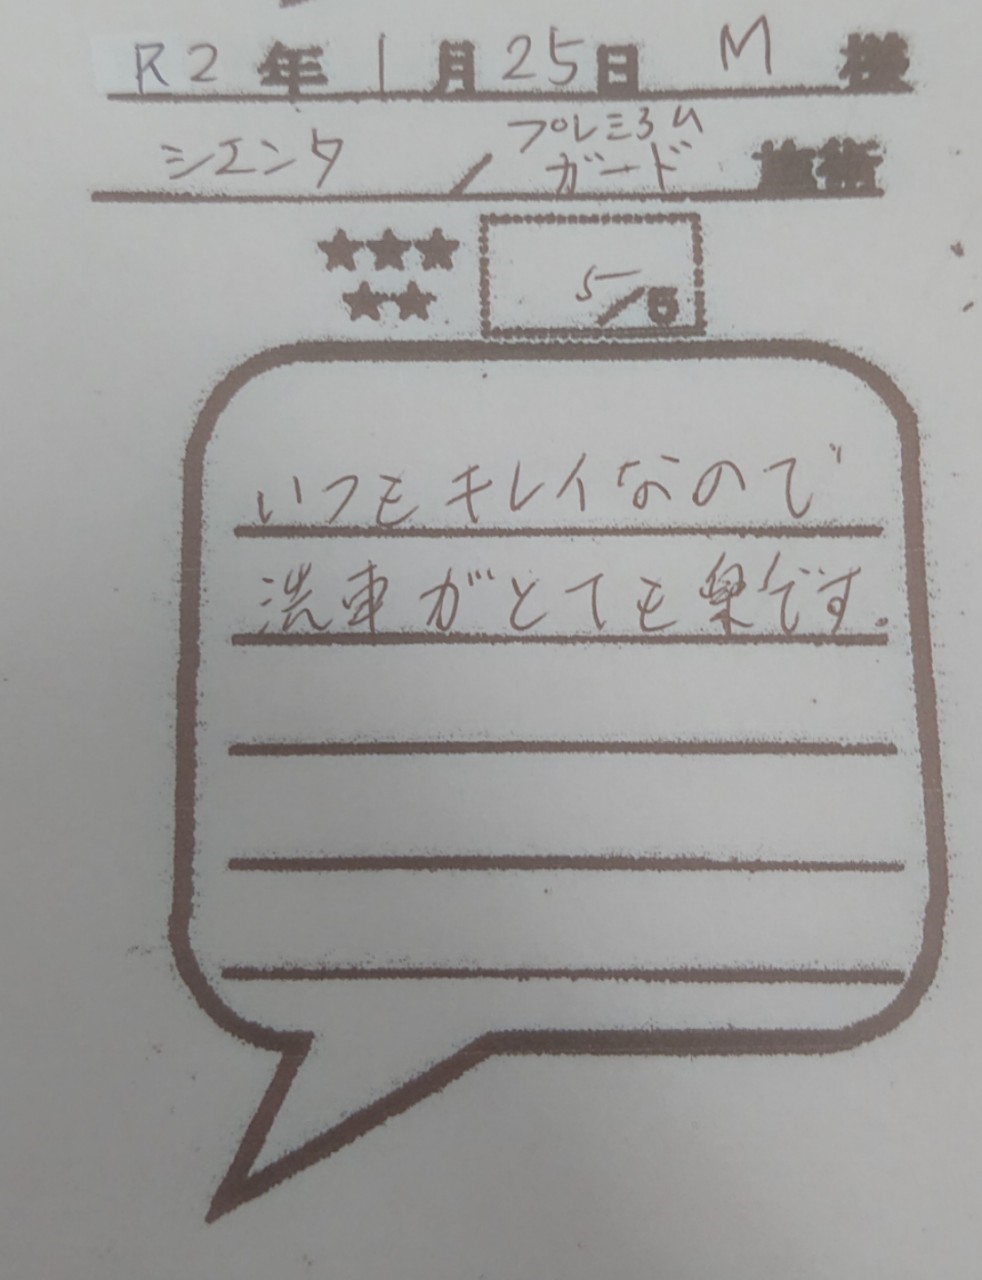 R2年1月25日 M 様
シエンタ / プレミアム
ガード 施術
★★★
★★
5/5
いつもキレイなので
洗車がとても楽です。